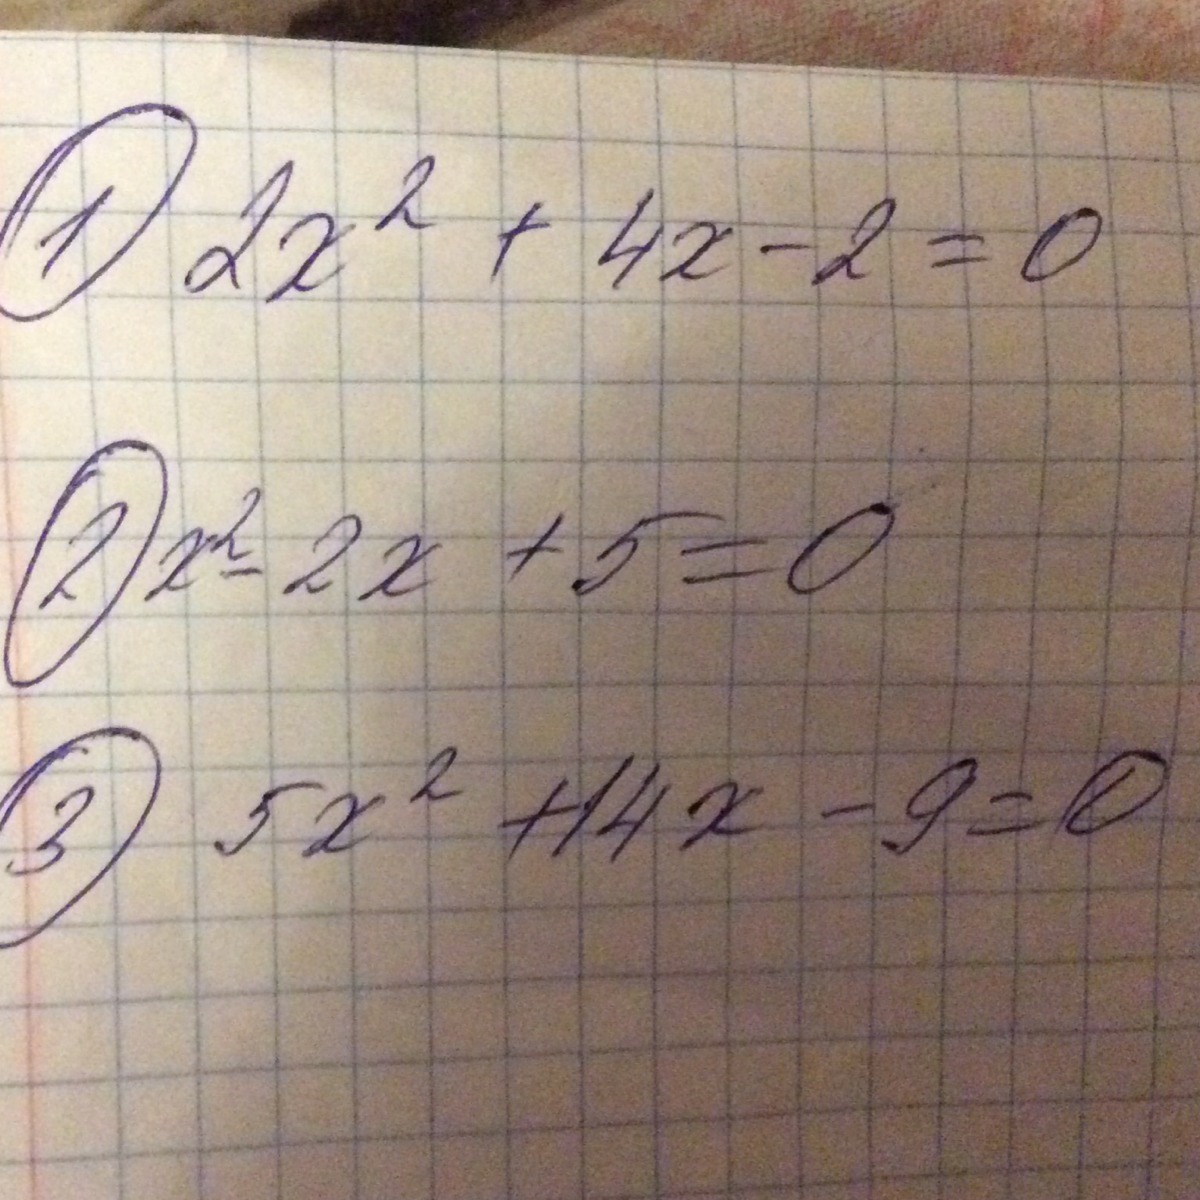 ① 2x² + 4x - 2 = 0
② x² - 2x + 5 = 0
③ 5x² + 14x - 9 = 0